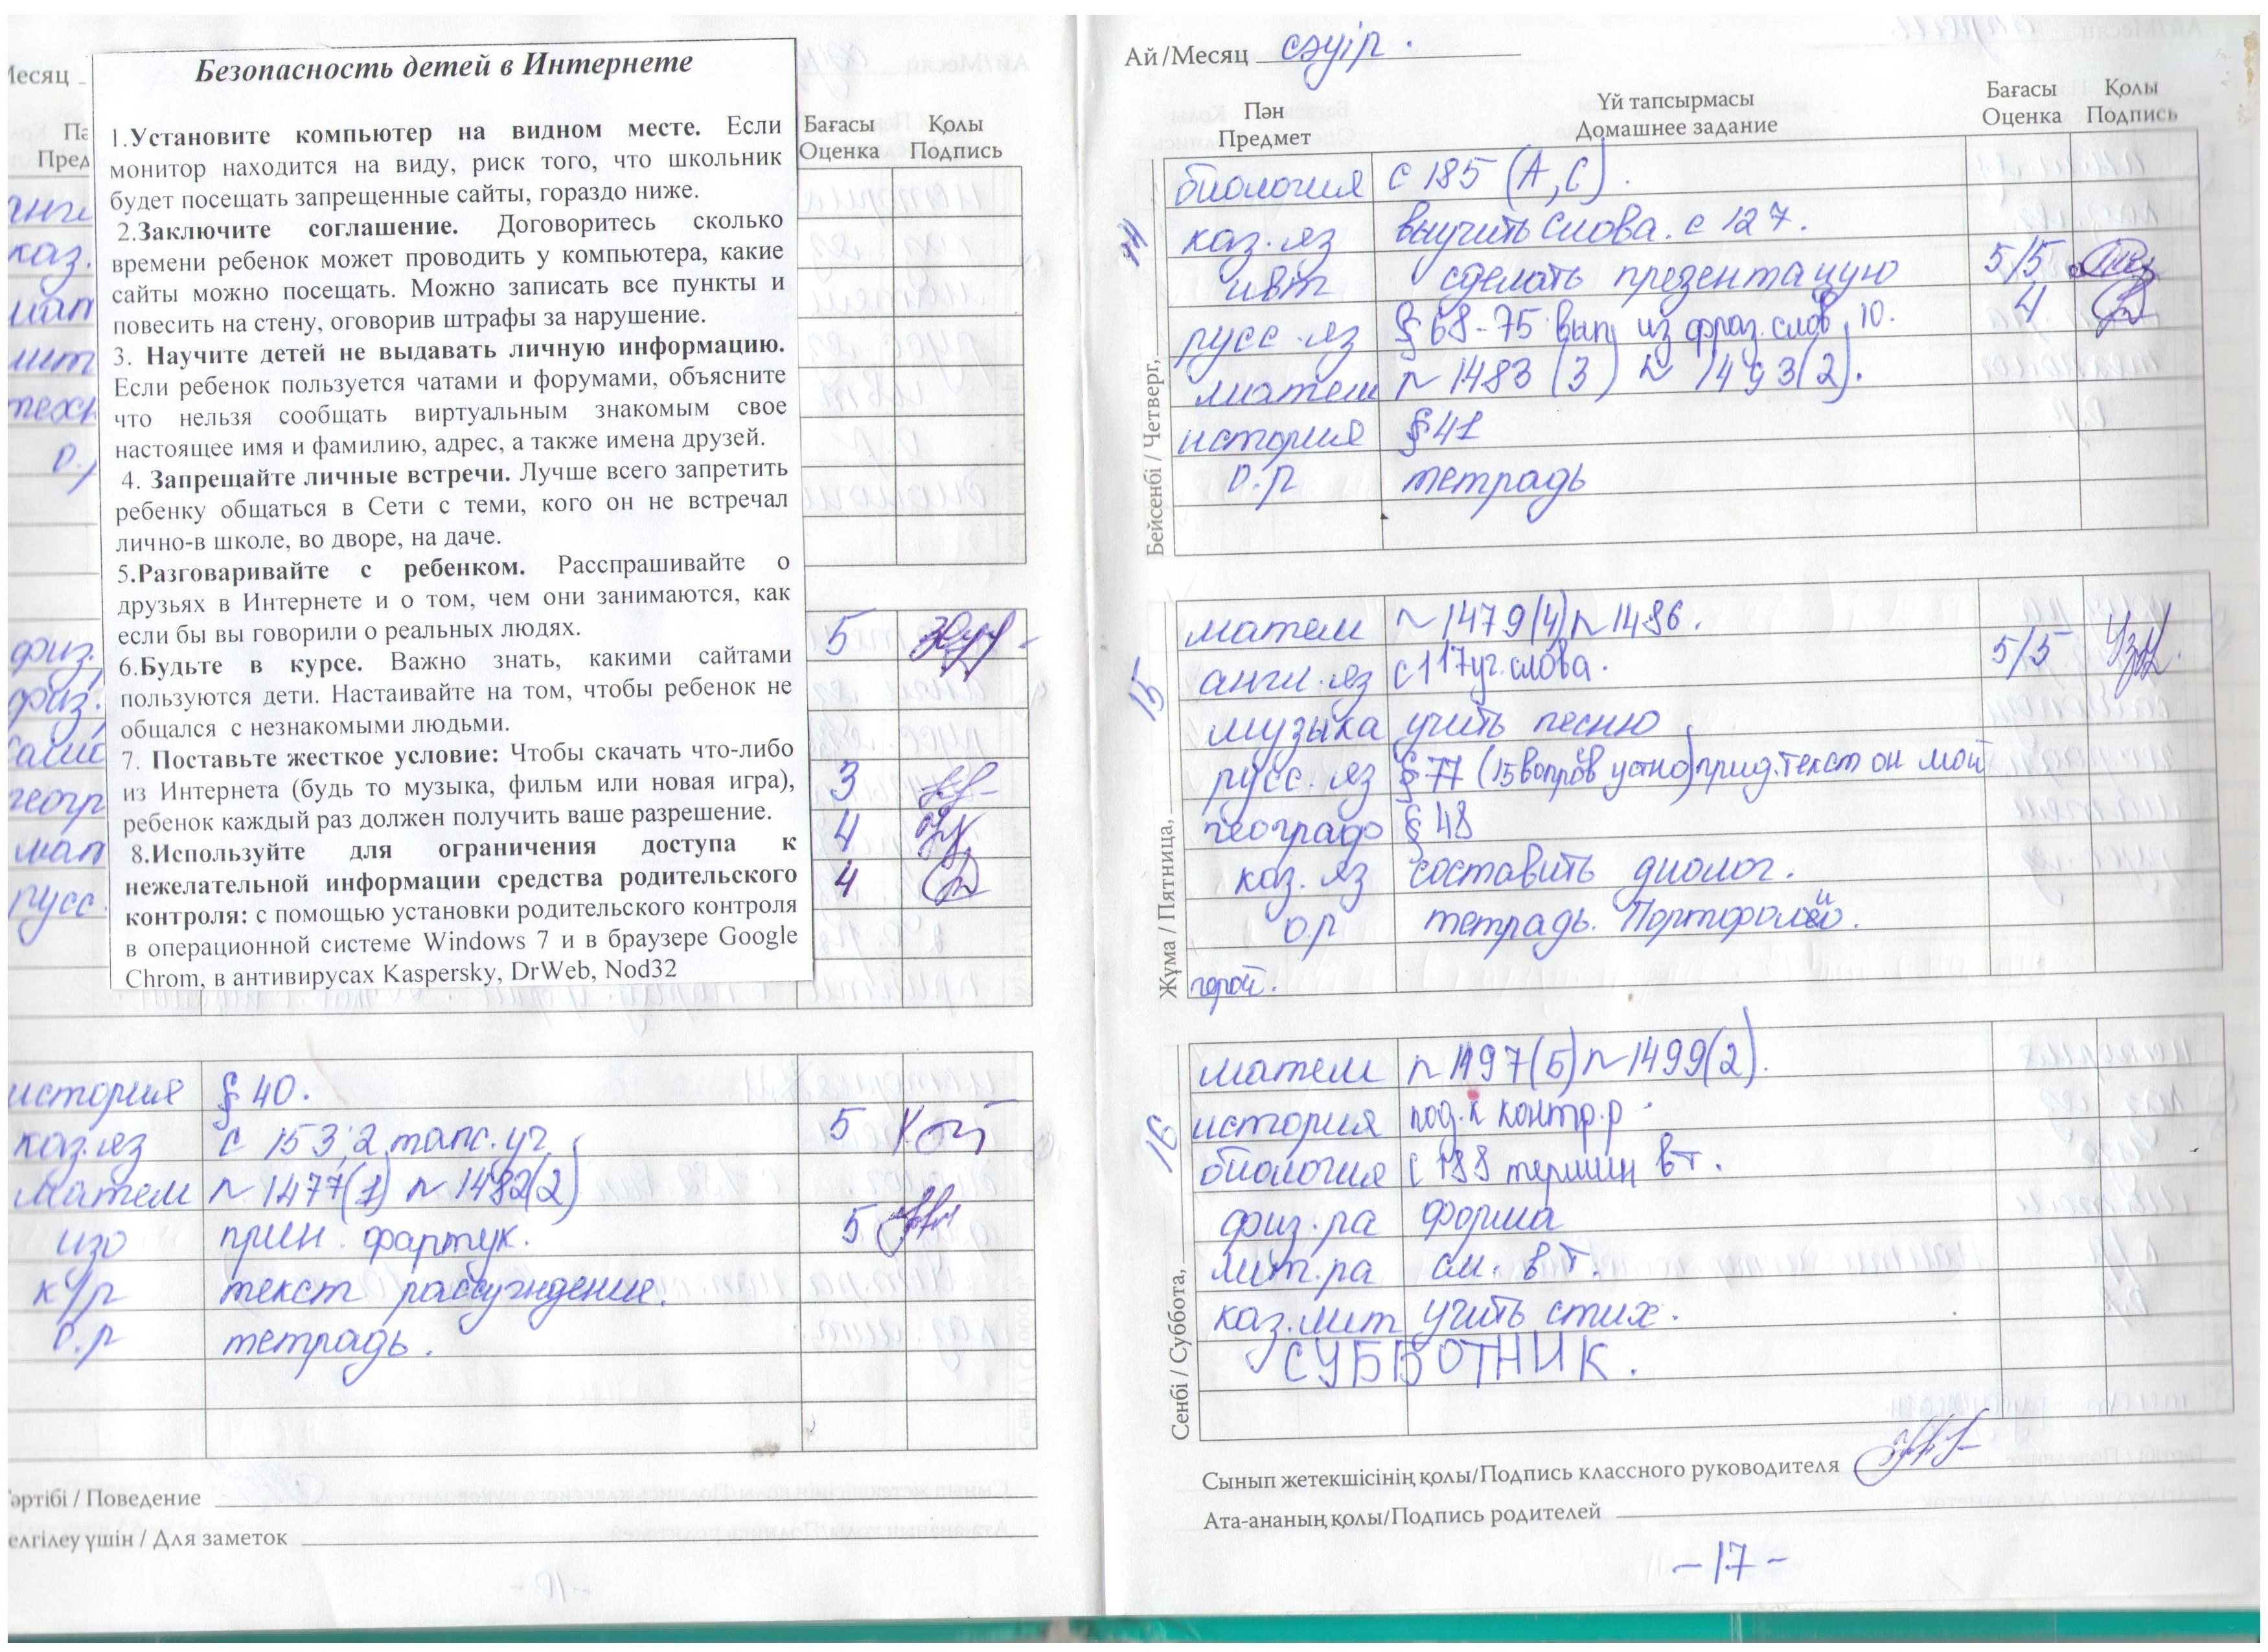 Месяц
Безопасность детей в Интернете
1.Установите компьютер на видном месте. Если
монитор находится на виду, риск того, что школьник
будет посещать запрещенные сайты, гораздо ниже.
2.Заключите соглашение. Договоритесь сколько
времени ребенок может проводить у компьютера, какие
сайты можно посещать. Можно записать все пункты и
повесить на стену, оговорив штрафы за нарушение.
3. Научите детей не выдавать личную информацию.
Если ребенок пользуется чатами и форумами, объясните
что нельзя сообщать виртуальным знакомым свое
настоящее имя и фамилию, адрес, а также имена друзей.
4. Запрещайте личные встречи. Лучше всего запретить
ребенку общаться в Сети с теми, кого он не встречал
лично-в школе, во дворе, на даче.
5.Разговаривайте с ребенком. Расспрашивайте о
друзьях в Интернете и о том, чем они занимаются, как
если бы вы говорили о реальных людях.
6.Будьте в курсе. Важно знать, какими сайтами
пользуются дети. Настаивайте на том, чтобы ребенок не
общался с незнакомыми людьми.
7. Поставьте жесткое условие: Чтобы скачать что-либо
из Интернета (будь то музыка, фильм или новая игра),
ребенок каждый раз должен получить ваше разрешение.
8.Используйте для ограничения доступа к
нежелательной информации средства родительского
контроля: с помощью установки родительского контроля
в операционной системе Windows 7 и в браузере Google
Chrom, в антивирусах Kaspersky, DrWeb, Nod32
Пә
Пред
Бағасы Қолы
Оценка Подпись
англ
каз.
мат
лит
техн
о.р
физ.
физ.
геогр
мат
русс.
5
3
4
4
история § 40.
каз.яз с 153,2 тапс. уч 5
матем № 1477(1) № 1482(2)
изо прин. фартук. 5
к/р текст рассуждение.
о.р тетрадь.
әртібі / Поведение
елгілеу үшін / Для заметок
Ай/Месяц сәуір.
Пән Үй тапсырмасы Бағасы Қолы
Предмет Домашнее задание Оценка Подпись
Бейсенбі / Четверг,
биология с 185 (А,С).
каз.яз выучить слова. с 127.
ивт сделать презентацую 5/5
русс.яз § 68-75 вып из фраз.слов. 10. 4
матем № 1483 (3) № 1493(2).
история § 41
о.р тетрадь
Жұма / Пятница, 15
матем № 1479(4) № 1486.
англ.яз с 117 уч.слова. 5/5
музыка учить песню
русс.яз § 77 (15 вопров устно) прид.текст он мой
географ § 48
каз.яз составить диолог.
о.р тетрадь. Портфолио.
герой.
Сенбі / Суббота, 16
матем № 1497(5) № 1499(2).
история под.к контр.р.
биология с 188 термин вт.
физ.ра форма
лит.ра см. в т.
каз.лит учить стих.
СУББОТНИК.
Сынып жетекшісінің қолы/Подпись классного руководителя
Ата-ананың қолы/Подпись родителей
-17-